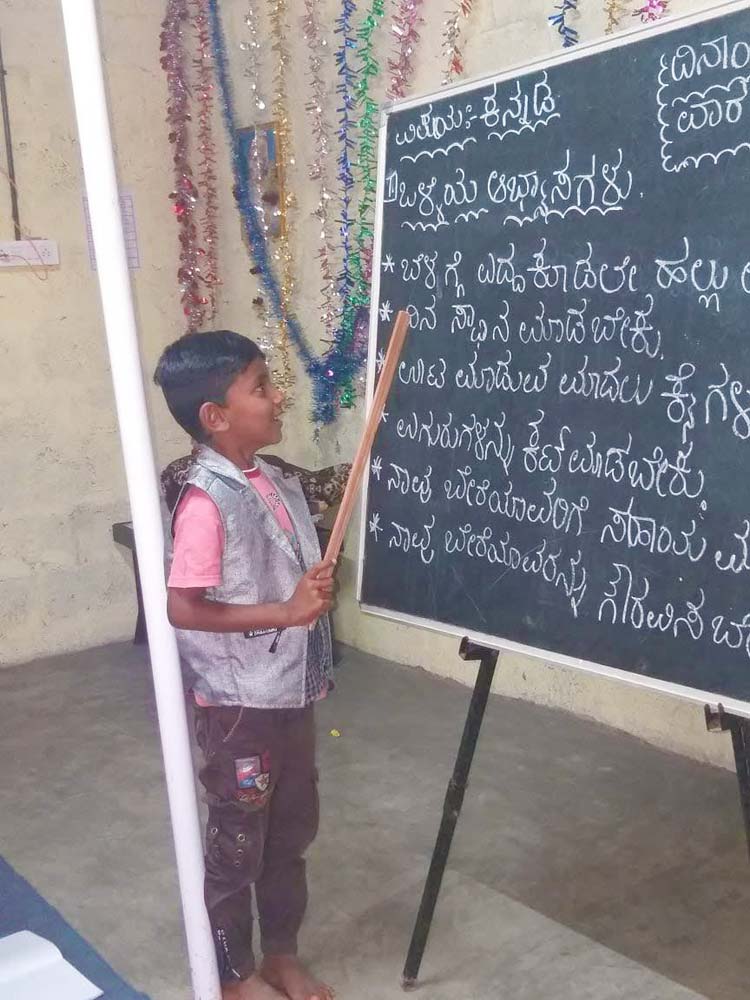 ವಿಷಯ:- ಕನ್ನಡ
ದಿನಾಂ
ವಾರ
1) ಒಳ್ಳೆಯ ಅಭ್ಯಾಸಗಳು.
* ಬೆಳಗ್ಗೆ ಎದ್ದ ಕೂಡಲೇ ಹಲ್ಲು
* ದಿನ ಸ್ನಾನ ಮಾಡಬೇಕು.
* ಊಟ ಮಾಡುವ ಮೊದಲು ಕೈಗಳ
* ಉಗುರುಗಳನ್ನು ಕಟ್ ಮಾಡಬೇಕು.
* ನಾವು ಬೇರೆಯವರಿಗೆ ಸಹಾಯ ಮ
* ನಾವು ಬೇರೆಯವರನ್ನು ಗೌರವಿಸಬೇ